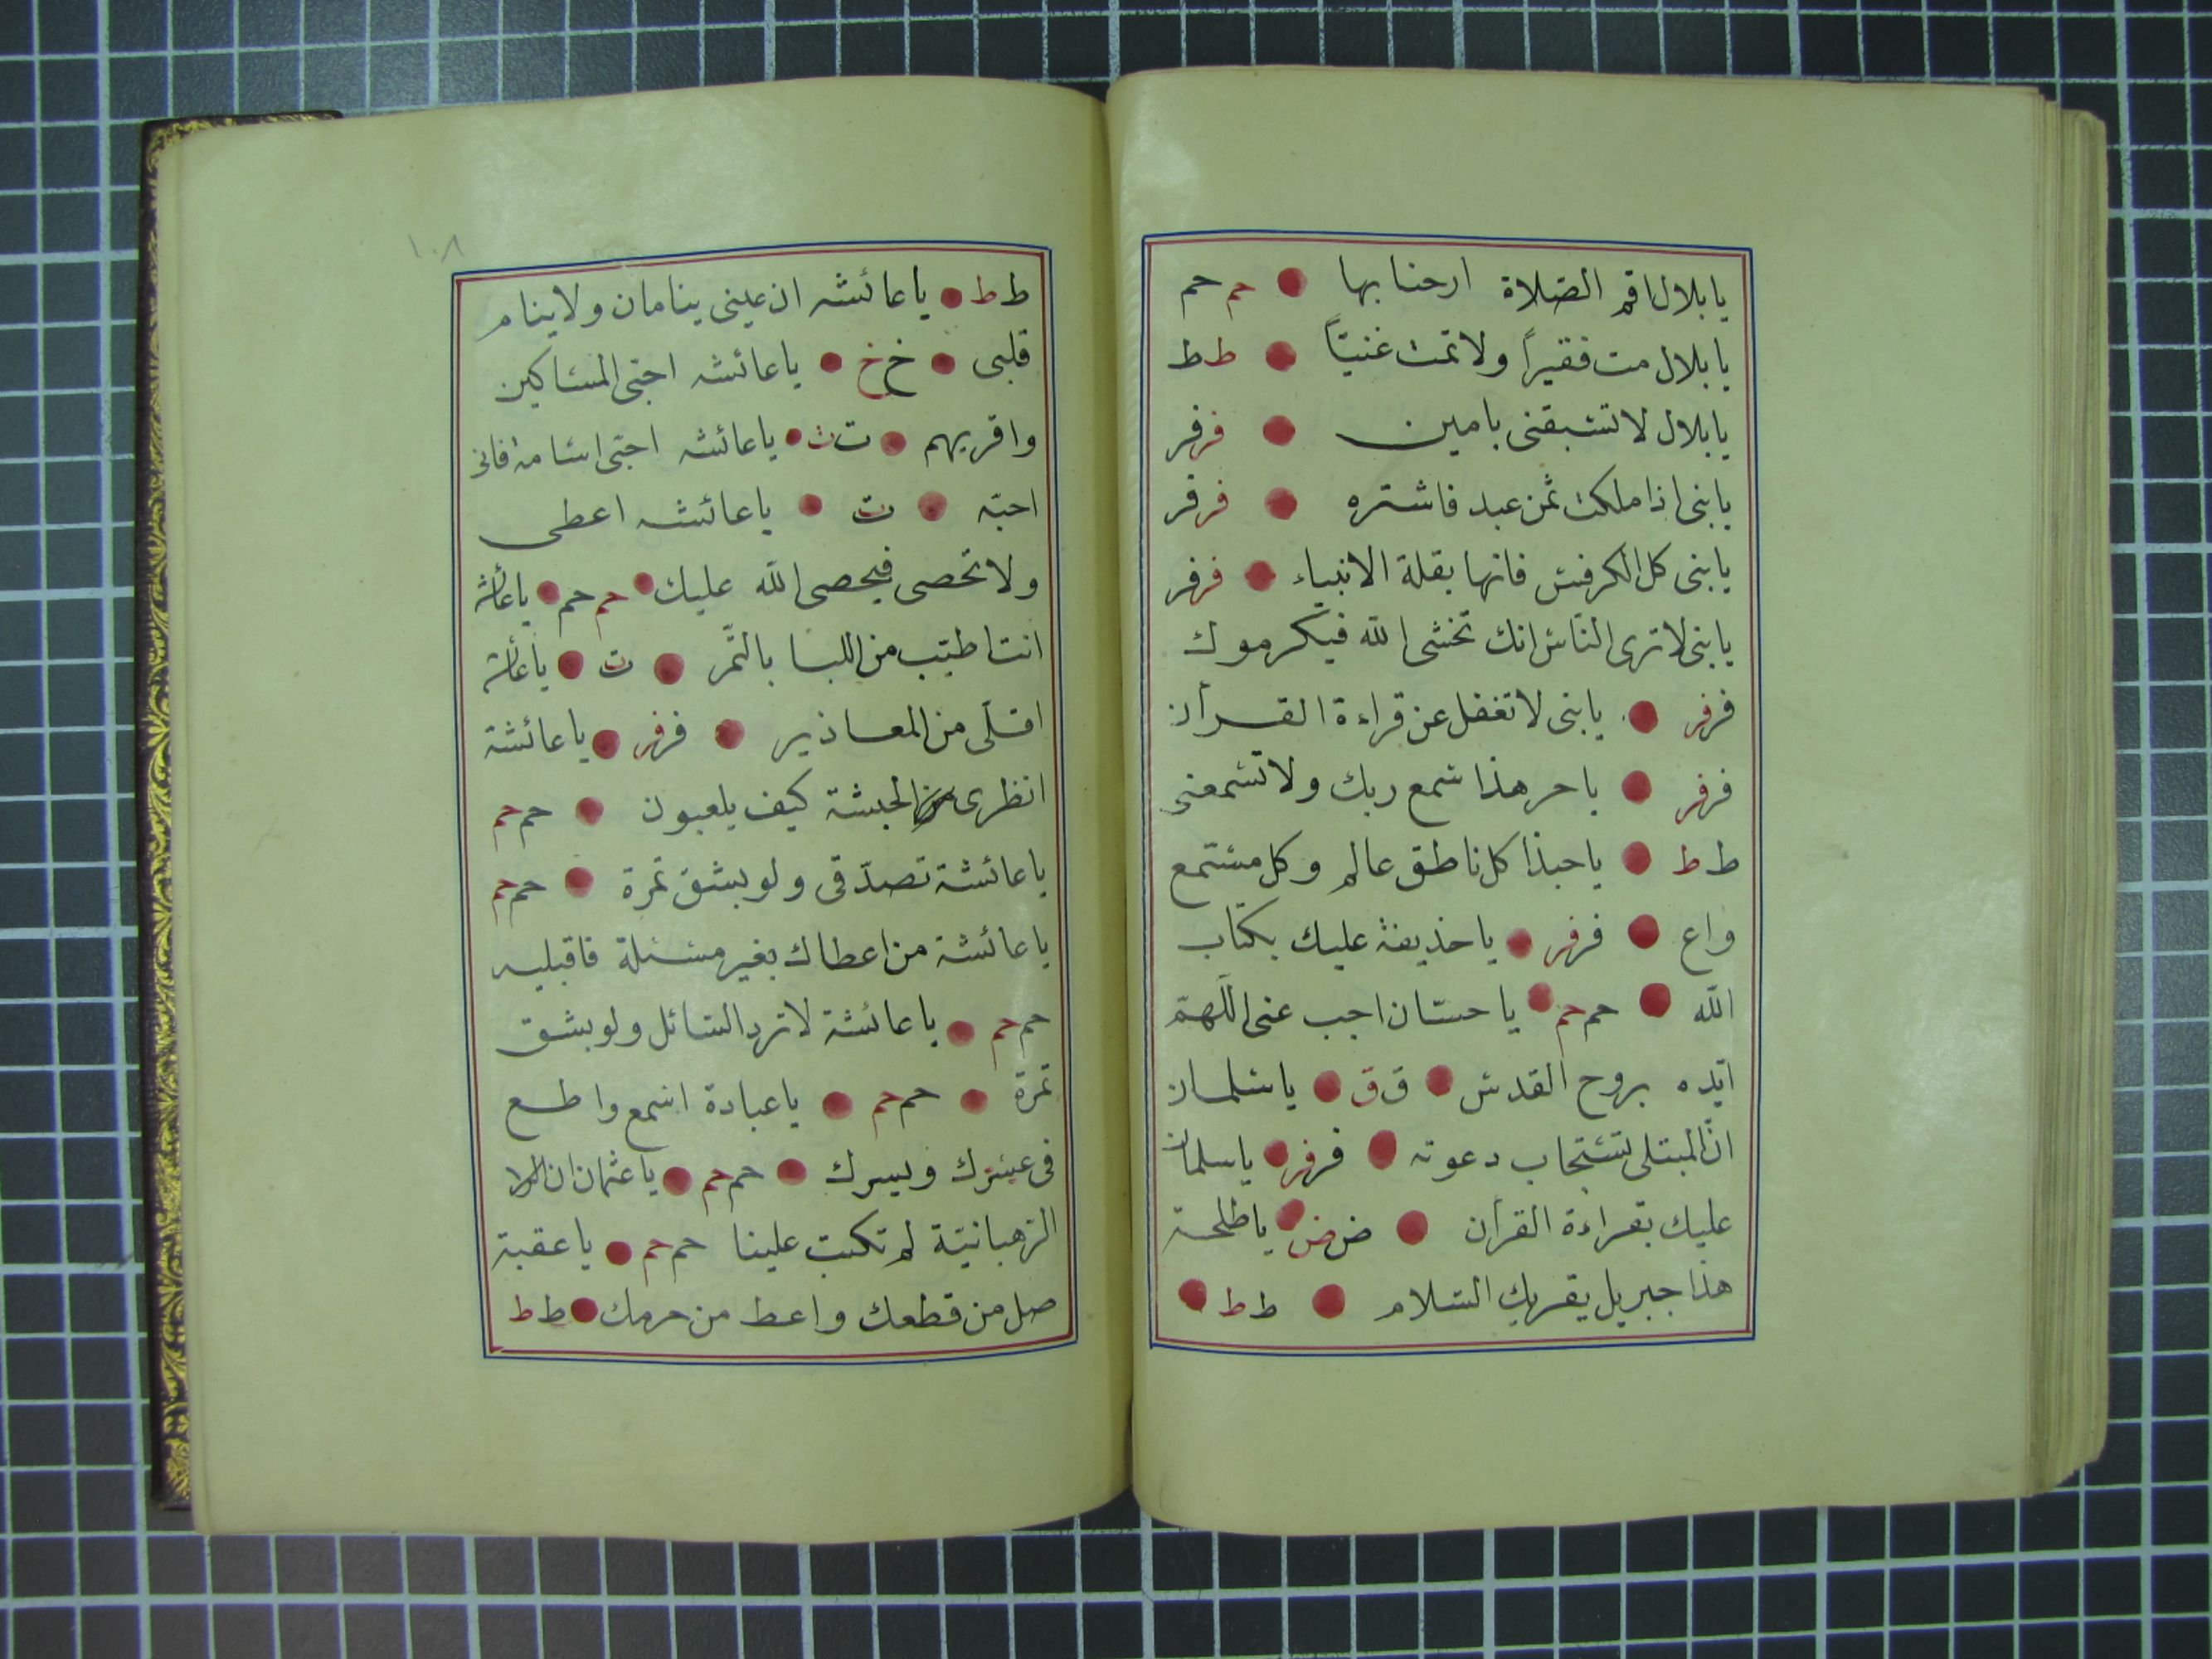 يا بلال اقم الصلاة ارحنا بها ● حم حم
يا بلال مت فقيراً ولا تمت غنيّاً ● ط ط
يا بلال لا تسبقنى بامين ● فر فر
يا بنى اذا ملكت ثمن عبد فاشتره ● فر فر
يا بنى كل الكرفس فانها بقلة الانبياء ● فر فر
يا بنى لا ترى الناس انك تخشى الله فيكرموك
فر فر ● يا بنى لا تغفل عن قراءة القرأن
فر فر ● يا حر هذا سمع ربك ولا تسمعنى
ط ط ● يا حبذا كل ناطق عالم وكل مستمع
واع ● فر فر ● يا حذيفة عليك بكتاب
الله ● حم حم ● يا حسّان اجب عنى اللهمّ
ايّده بروح القدس ● ق ق ● يا سلمان
انّ المبتلى تستجاب دعوته ● فر فر ● يا سلمان
عليك بقراءة القرأن ● ض ض ● يا طلحة
هذا جبريل يقريك السّلام ● ط ط ●
١٠٨
ط ط ● يا عائشه ان عينى ينامان ولا ينام
قلبى ● خ خ ● يا عائشه احبّى المساكين
واقربهم ● ت ت ● يا عائشه احبّى اسامة فانى
احبّه ● ت ● يا عائشه اعطى
ولا تحصى فيحصى الله عليك ● حم حم ● يا عائشه
انت اطيّب من اللبا بالتّمر ● ت ● يا عائشه
اقلّى من المعاذير ● فر فر ● يا عائشة
انظرى الحبشة كيف يلعبون ● حم حم
يا عائشة تصدّقى ولو بشق تمرة ● حم حم
يا عائشة من اعطاك بغير مسئلة فاقبليه
حم حم ● يا عائشة لا ترد السّائل ولو بشق
تمرة ● حم حم ● يا عبادة اسمع واطع
فى عسرك ويسرك ● حم حم ● يا عثمان ان
الرّهبانيّة لم تكتب علينا حم حم ● يا عقبة
صل من قطعك واعط من حرمك ● ط ط